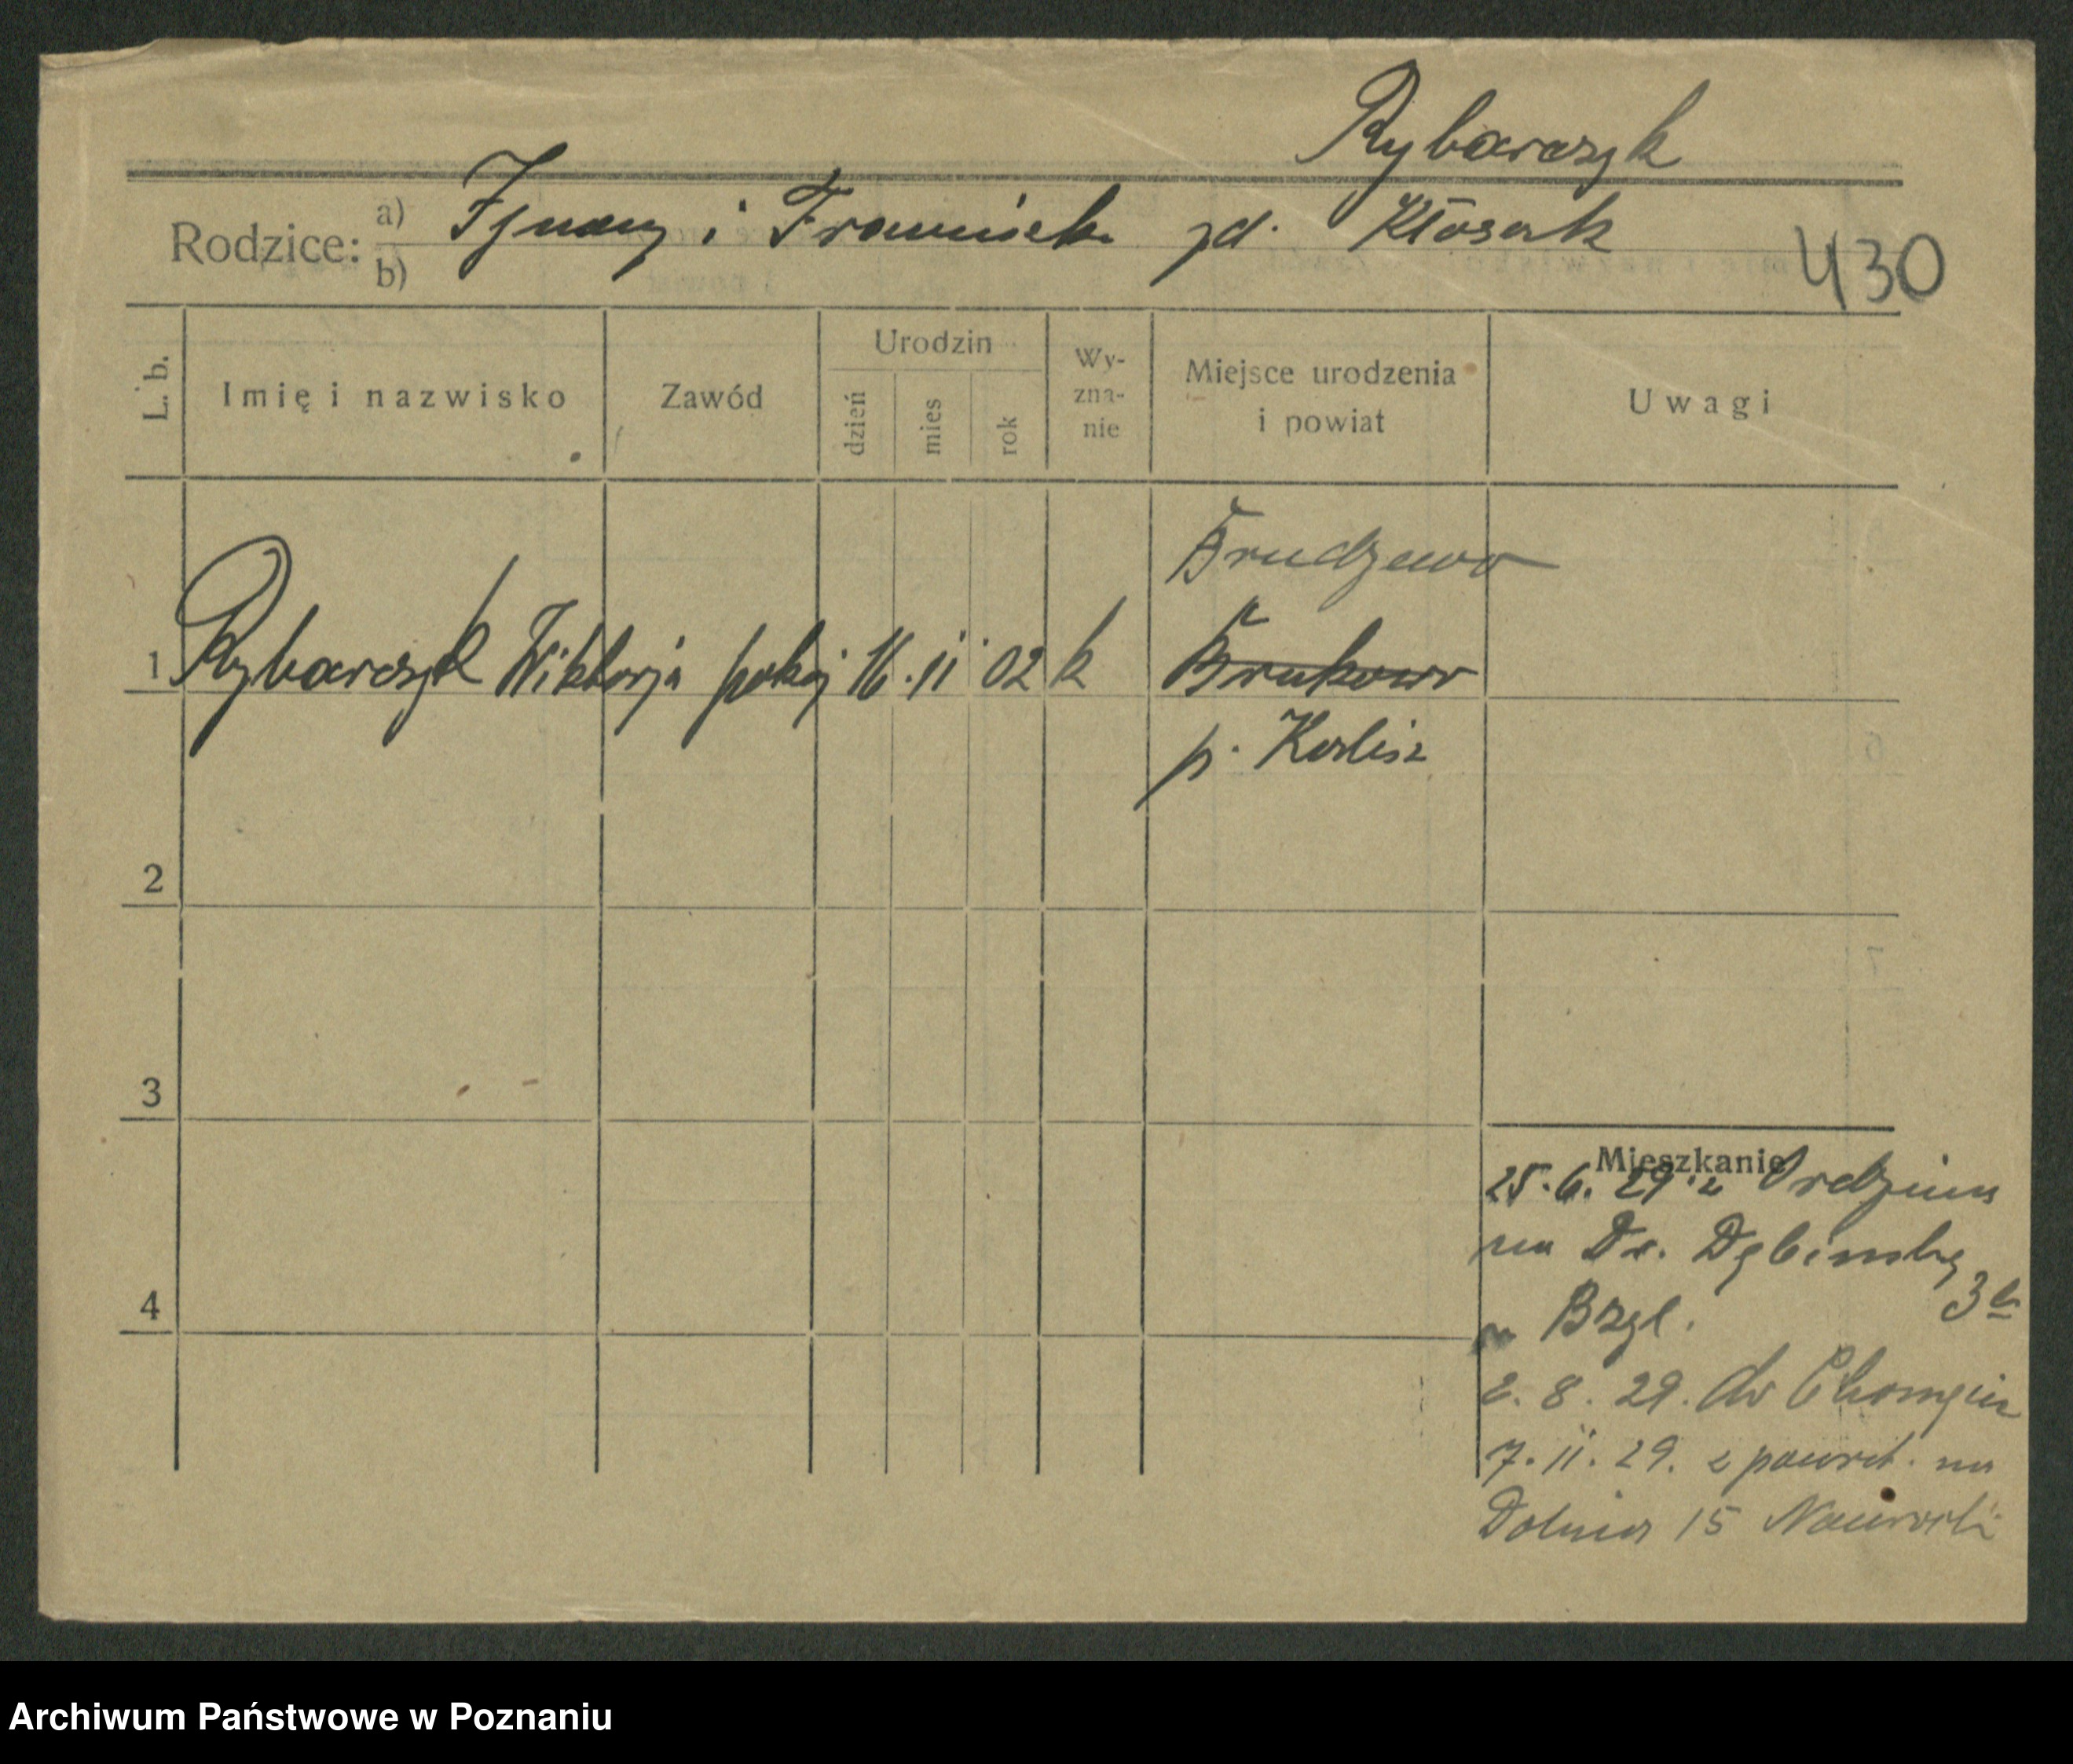 Rybarczyk
Rodzice: a) Ignacy i Franciszka zd. Kłosak
b)
430
L. b.
Imię i nazwisko
Zawód
Urodzin
dzień
mies
rok
Wy-
zna-
nie
Miejsce urodzenia
i powiat
Uwagi
Brudzewo
1 Rybarczyk Wiktorja pokoj 16. 11 02 k Brukowo
p. Kalisz
2
3
4
Mieszkanie
25. 6. 29. z
na Dr. Dębińską
3a
Brzgl.
2. 8. 29. do
7. 11. 29. z powrot. na
Dolina 15 Nawrocki
Archiwum Państwowe w Poznaniu